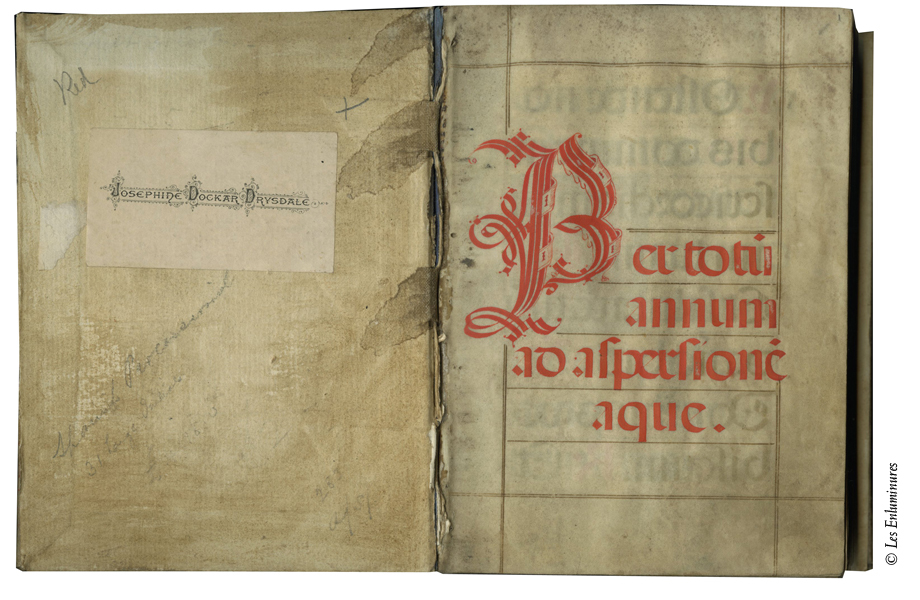 Red
JOSEPHINE DOCKAR DRYSDALE
Processional
Per totū
annum
ad aspersionē
aque.
© Les Enluminures